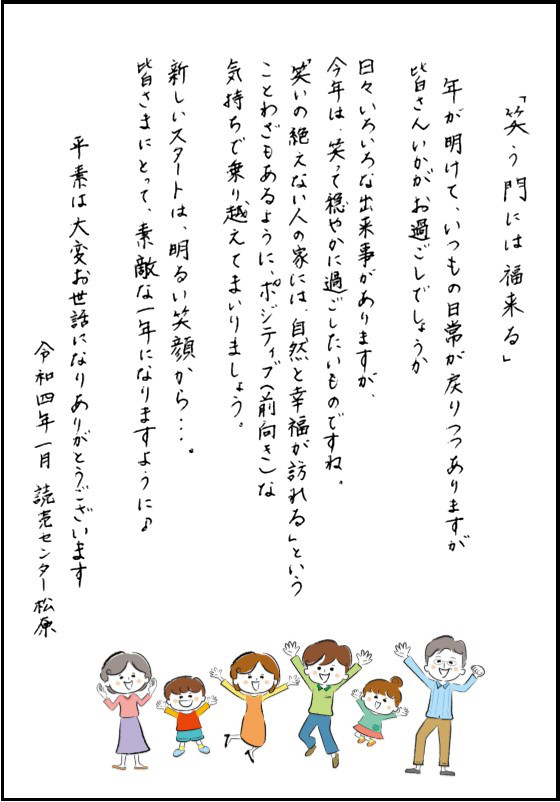 「笑う門には福来る」
年が明けて、いつもの日常が戻りつつありますが
皆さんいかがお過ごしでしょうか
日々いろいろな出来事がありますが、
今年は、笑って穏やかに過ごしたいものですね。
「笑いの絶えない人の家には、自然と幸福が訪れる」という
ことわざもあるように、ポジティブ(前向き)な
気持ちで乗り越えてまいりましょう。
新しいスタートは、明るい笑顔から・・・。
皆さまにとって、素敵な一年になりますように♪
平素は大変お世話になりありがとうございます
令和四年一月 読売センター松原